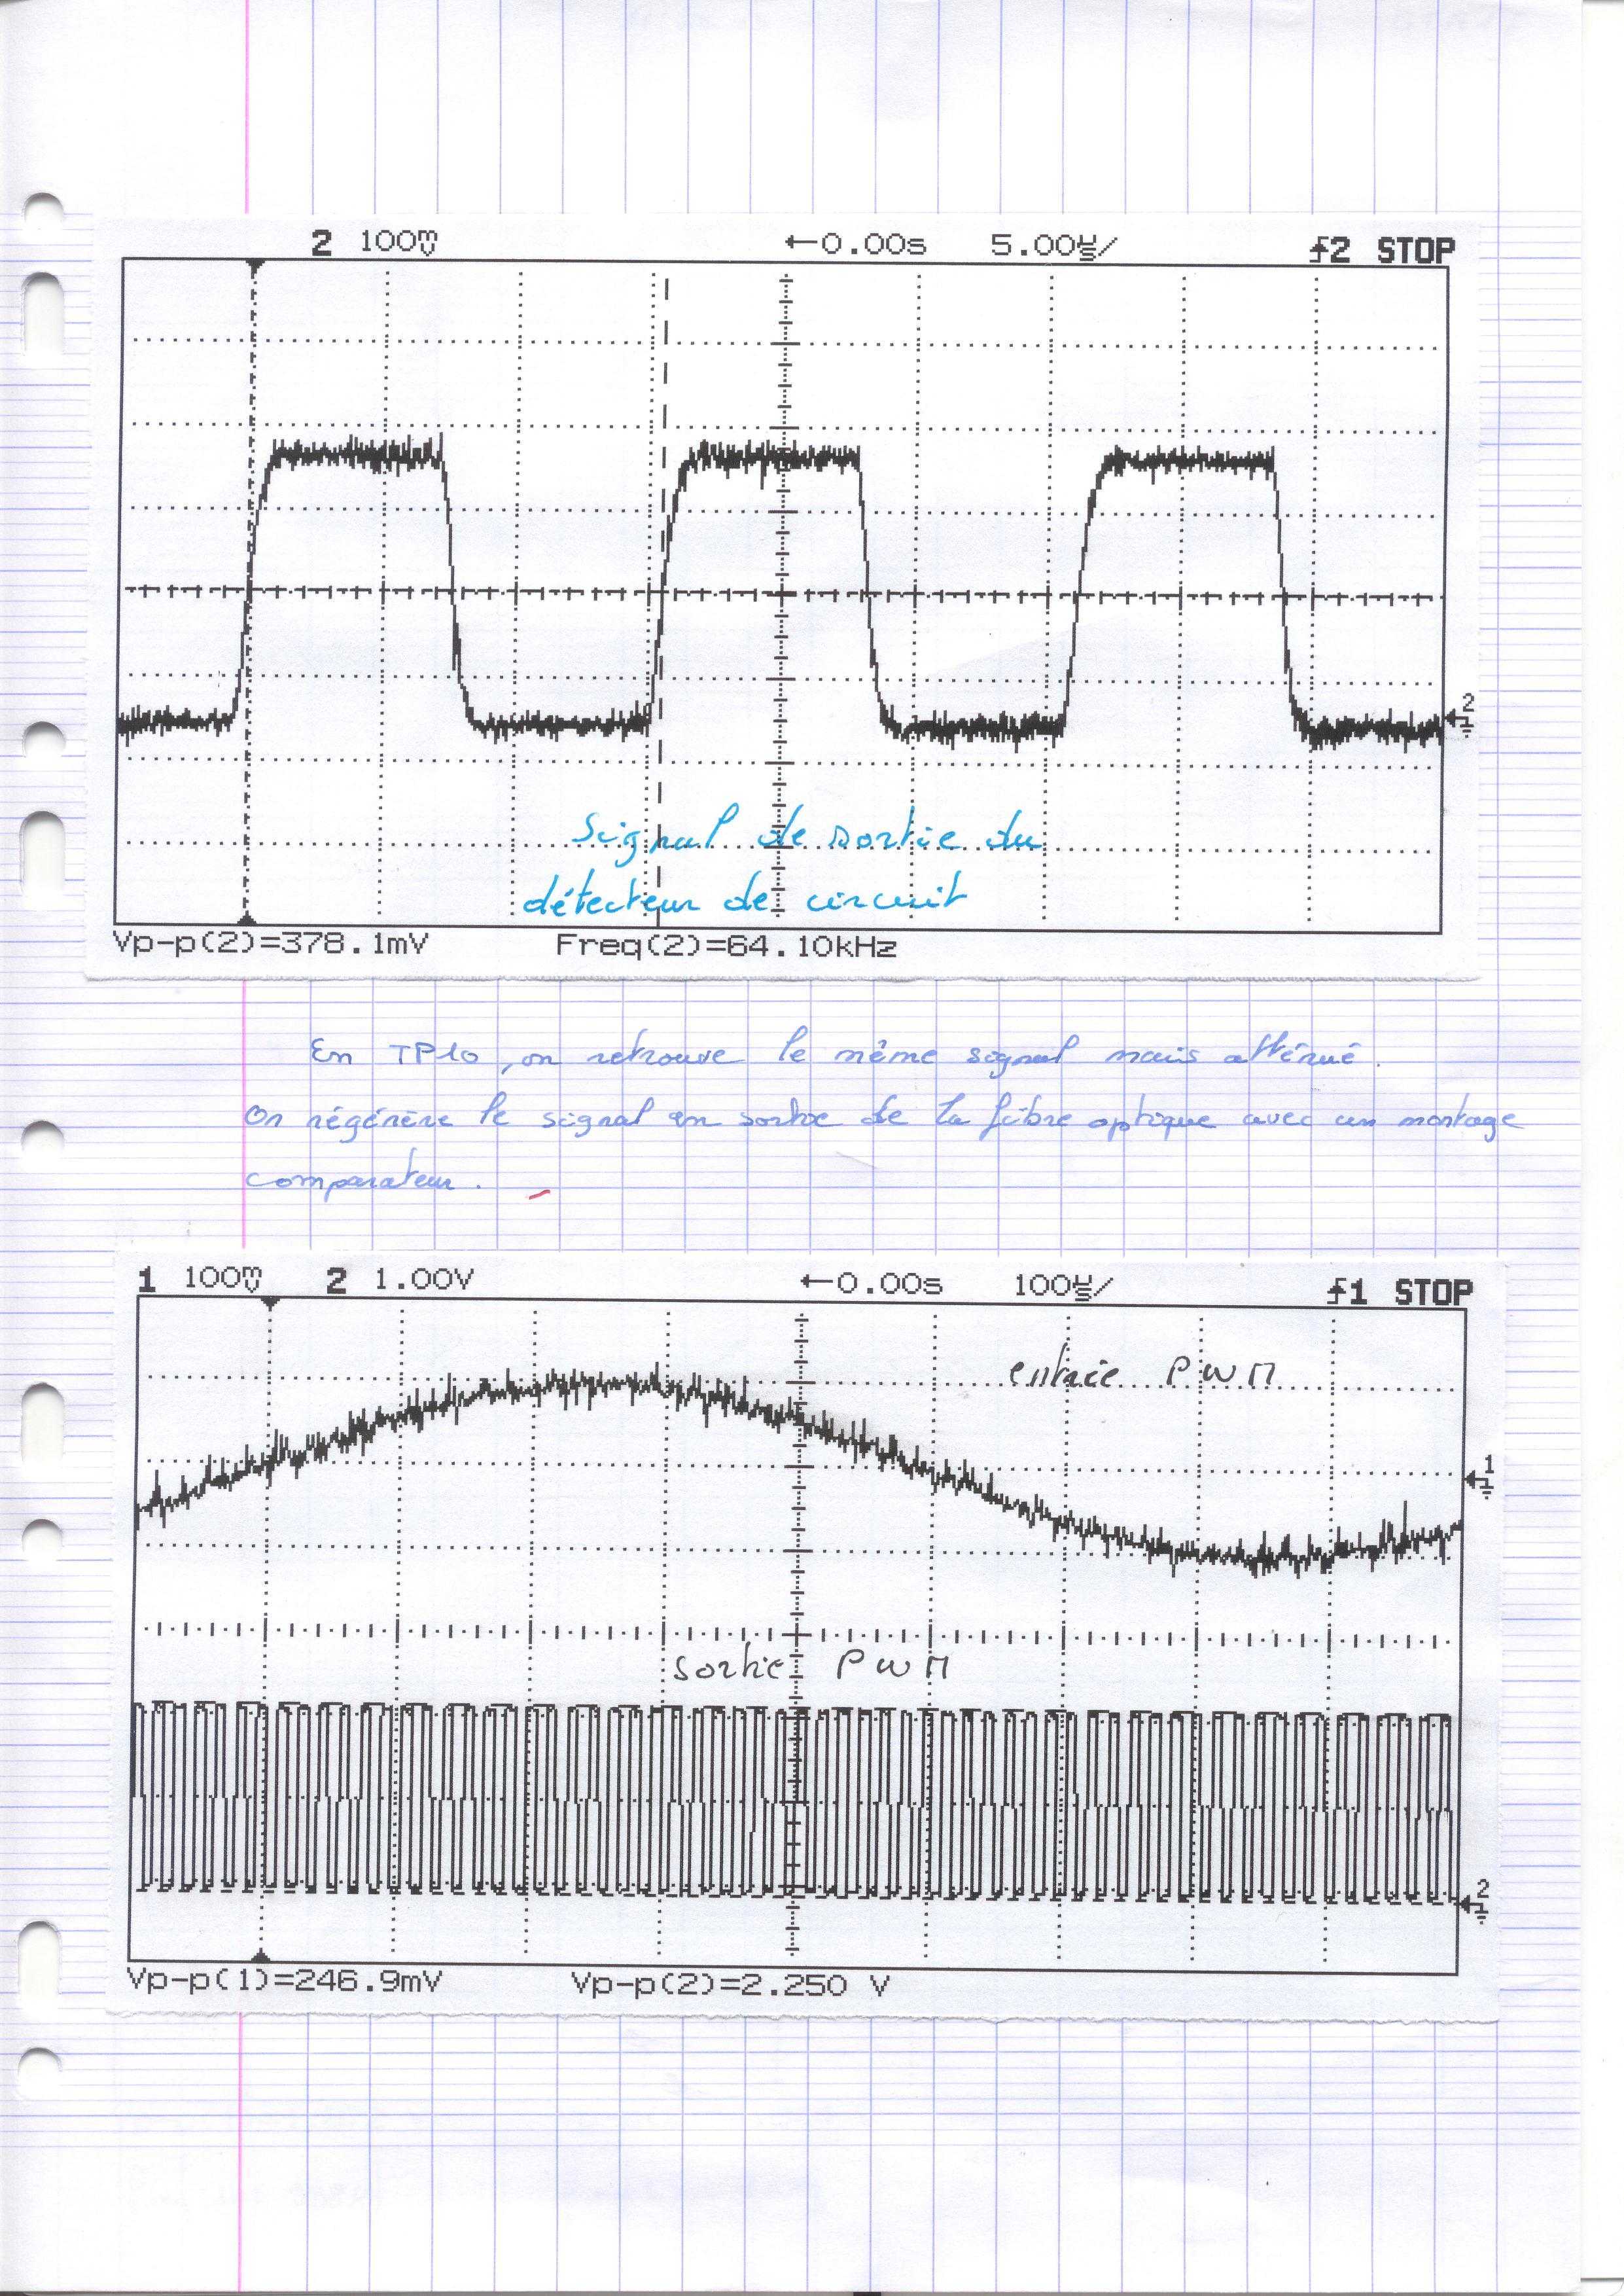 2 100mV ←0.00s 5.00µs/ ⨍2 STOP
2
Signal de sortie du
détecteur de circuit
Vp-p(2)=378.1mV Freq(2)=64.10kHz
En TP10, on retrouve le même signal mais atténué.
On régénère le signal en sortie de la fibre optique avec un montage
comparateur.
1 100mV 2 1.00V ←0.00s 100µs/ ⨍1 STOP
entrée PWM
1
sortie PWM
2
Vp-p(1)=246.9mV Vp-p(2)=2.250 V